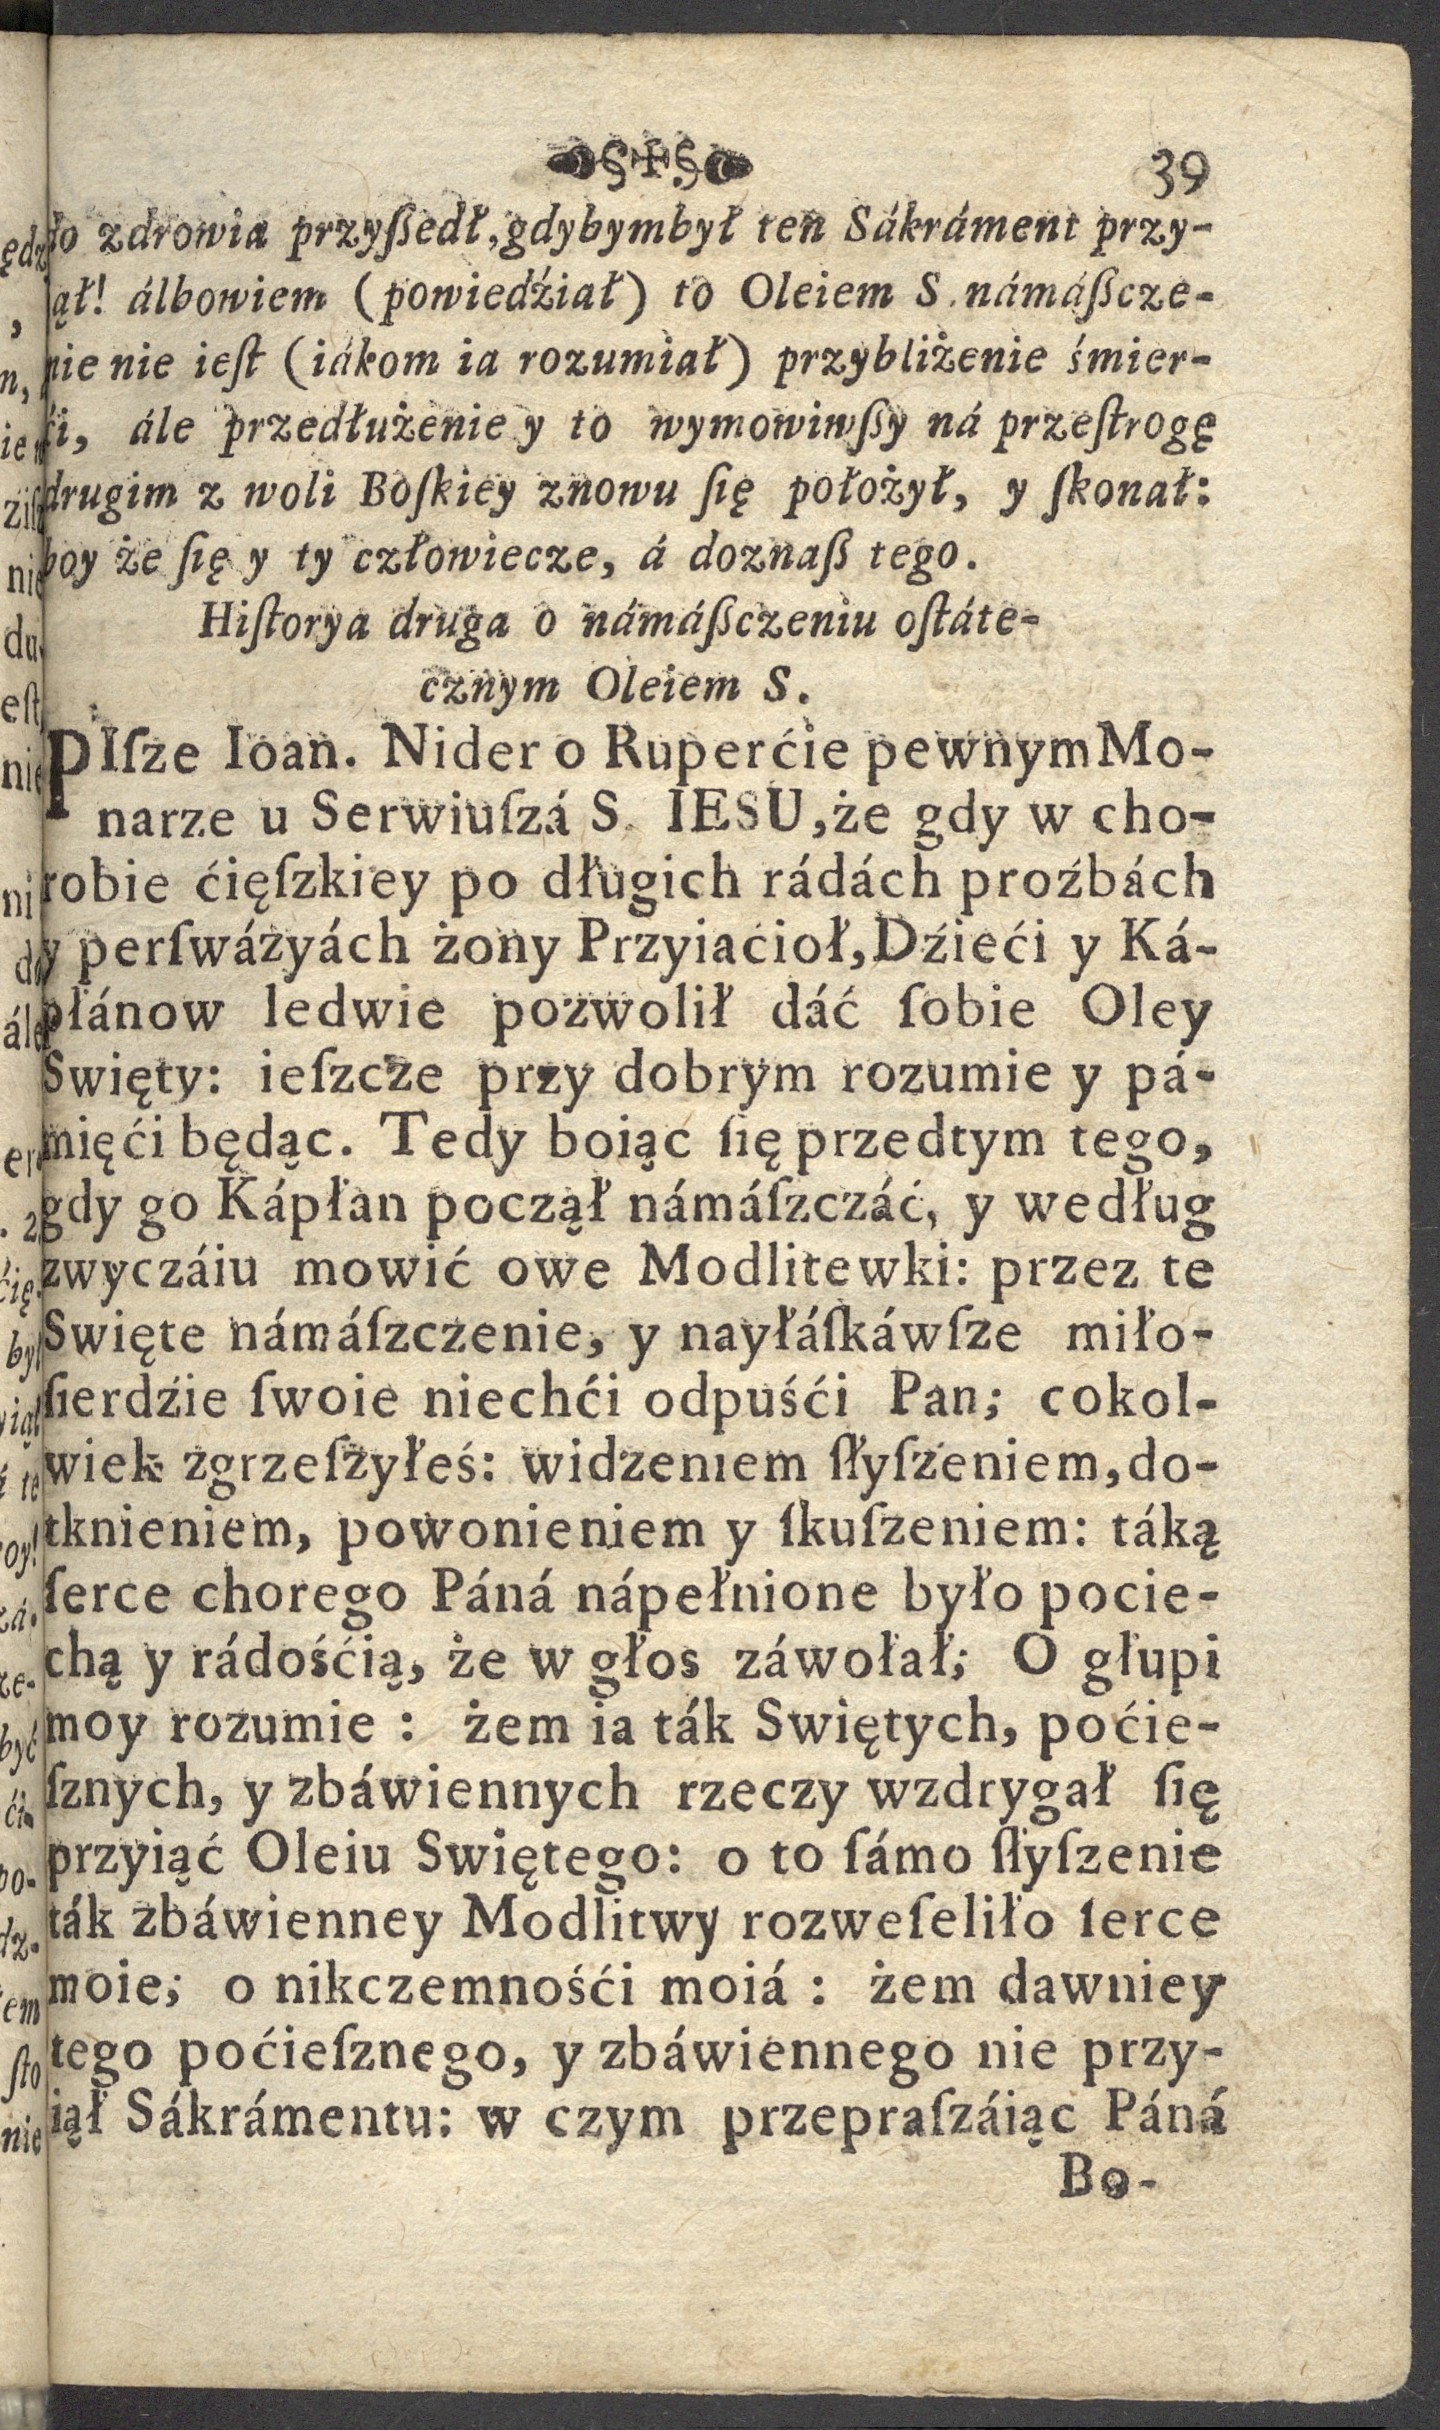 39
do zdrowia przyſßedł, gdybymbył ten Sákráment przy-
iął! álbowiem (powiedźiał) to Oleiem S. námáſßcze-
nie nie ieſt (iákom ia rozumiał) przybliżenie śmier-
ći, ále przedłużenie y to wymowiwſßy ná przeſtrogę
drugim z woli Boſkiey znowu ſię położył, y ſkonał:
boy że ſię y ty człowiecze, á doznaſß tego.
Hiſtorya druga o námáſßczeniu oſtáte-
cznym Oleiem S.
PIſze Ioan. Nider o Ruperćie pewnym Mo-
narze u Serwiuſzá S. IESU, że gdy w cho-
robie ćięſzkiey po długich rádách proźbách
y perſwázyách żony Przyiaćioł, Dźieći y Ká-
płánow ledwie pozwolił dáć ſobie Oley
Swięty: ieſzcze przy dobrym rozumie y pá-
mięći będąc. Tedy boiąc ſię przedtym tego,
gdy go Kápłan począł námáſzczáć, y według
zwyczáiu mowić owe Modlitewki: przez te
Swięte námáſzczenie, y nayłáſkáwſze miło-
ſierdźie ſwoie niechći odpuśći Pan; cokol-
wiek zgrzeſzyłeś: widzeniem ſłyſzeniem, do-
tknieniem, powonieniem y ſkuſzeniem: táką
ſerce chorego Páná nápełnione było pocie-
chą y rádośćią, że w głos záwołał; O głupi
moy rozumie : żem ia ták Swiętych, poćie-
ſznych, y zbáwiennych rzeczy wzdrygał ſię
przyiąć Oleiu Swiętego: o to ſámo ſłyſzenie
ták zbáwienney Modlitwy rozweſeliło ſerce
moie; o nikczemnośći moiá : żem dawniey
tego poćieſznego, y zbáwiennego nie przy-
iął Sákrámentu: w czym przepraſzáiąc Páná
Bo-